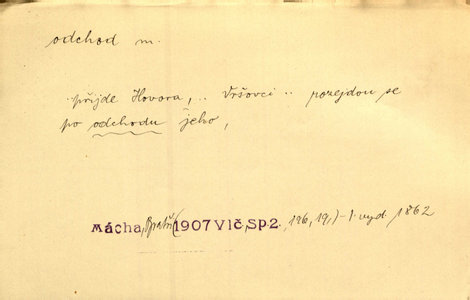 odchod m.
přijde Hovora, .. Vršovci .. pozejdou se
po odchodu jeho,
Mácha, Bratři (1907 Vlč, Sp. 2., 126, 19,) - 1. vyd. 1862